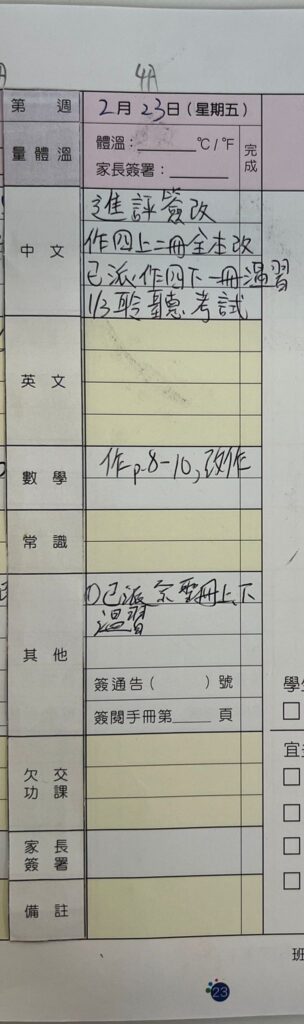 4A
第 週 2月23日(星期五)
量體溫 體溫:______℃/℉ 完成
家長簽署:______
中文 進評簽改
作四上二冊全本改
已派作四下一冊溫習
1/3聆聽考試
英文
數學 作p.8-10,改作
常識
其他 ①已派宗聖冊上、下
溫習
簽通告( )號
簽閱手冊第____頁
欠交功課
家長簽署
備註
學
宜
班
23